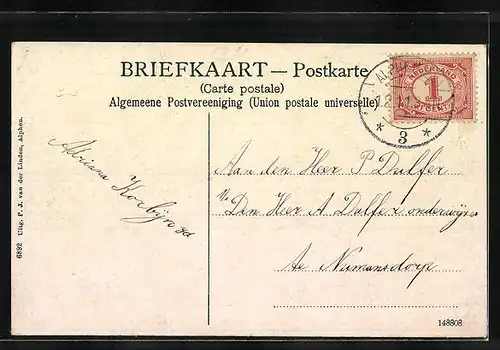 BRIEFKAART — Postkarte
(Carte postale)
Algemeene Postvereeniging (Union postale universelle).
NEDERLAND
1
CENT
3
Adriana Korbijn
Aan den Heer P Dulfer
Den Heer A Dulfer onderwijzer
te Numansdorp
6892 Uitg. P. J. van der Linden, Alphen.
148808